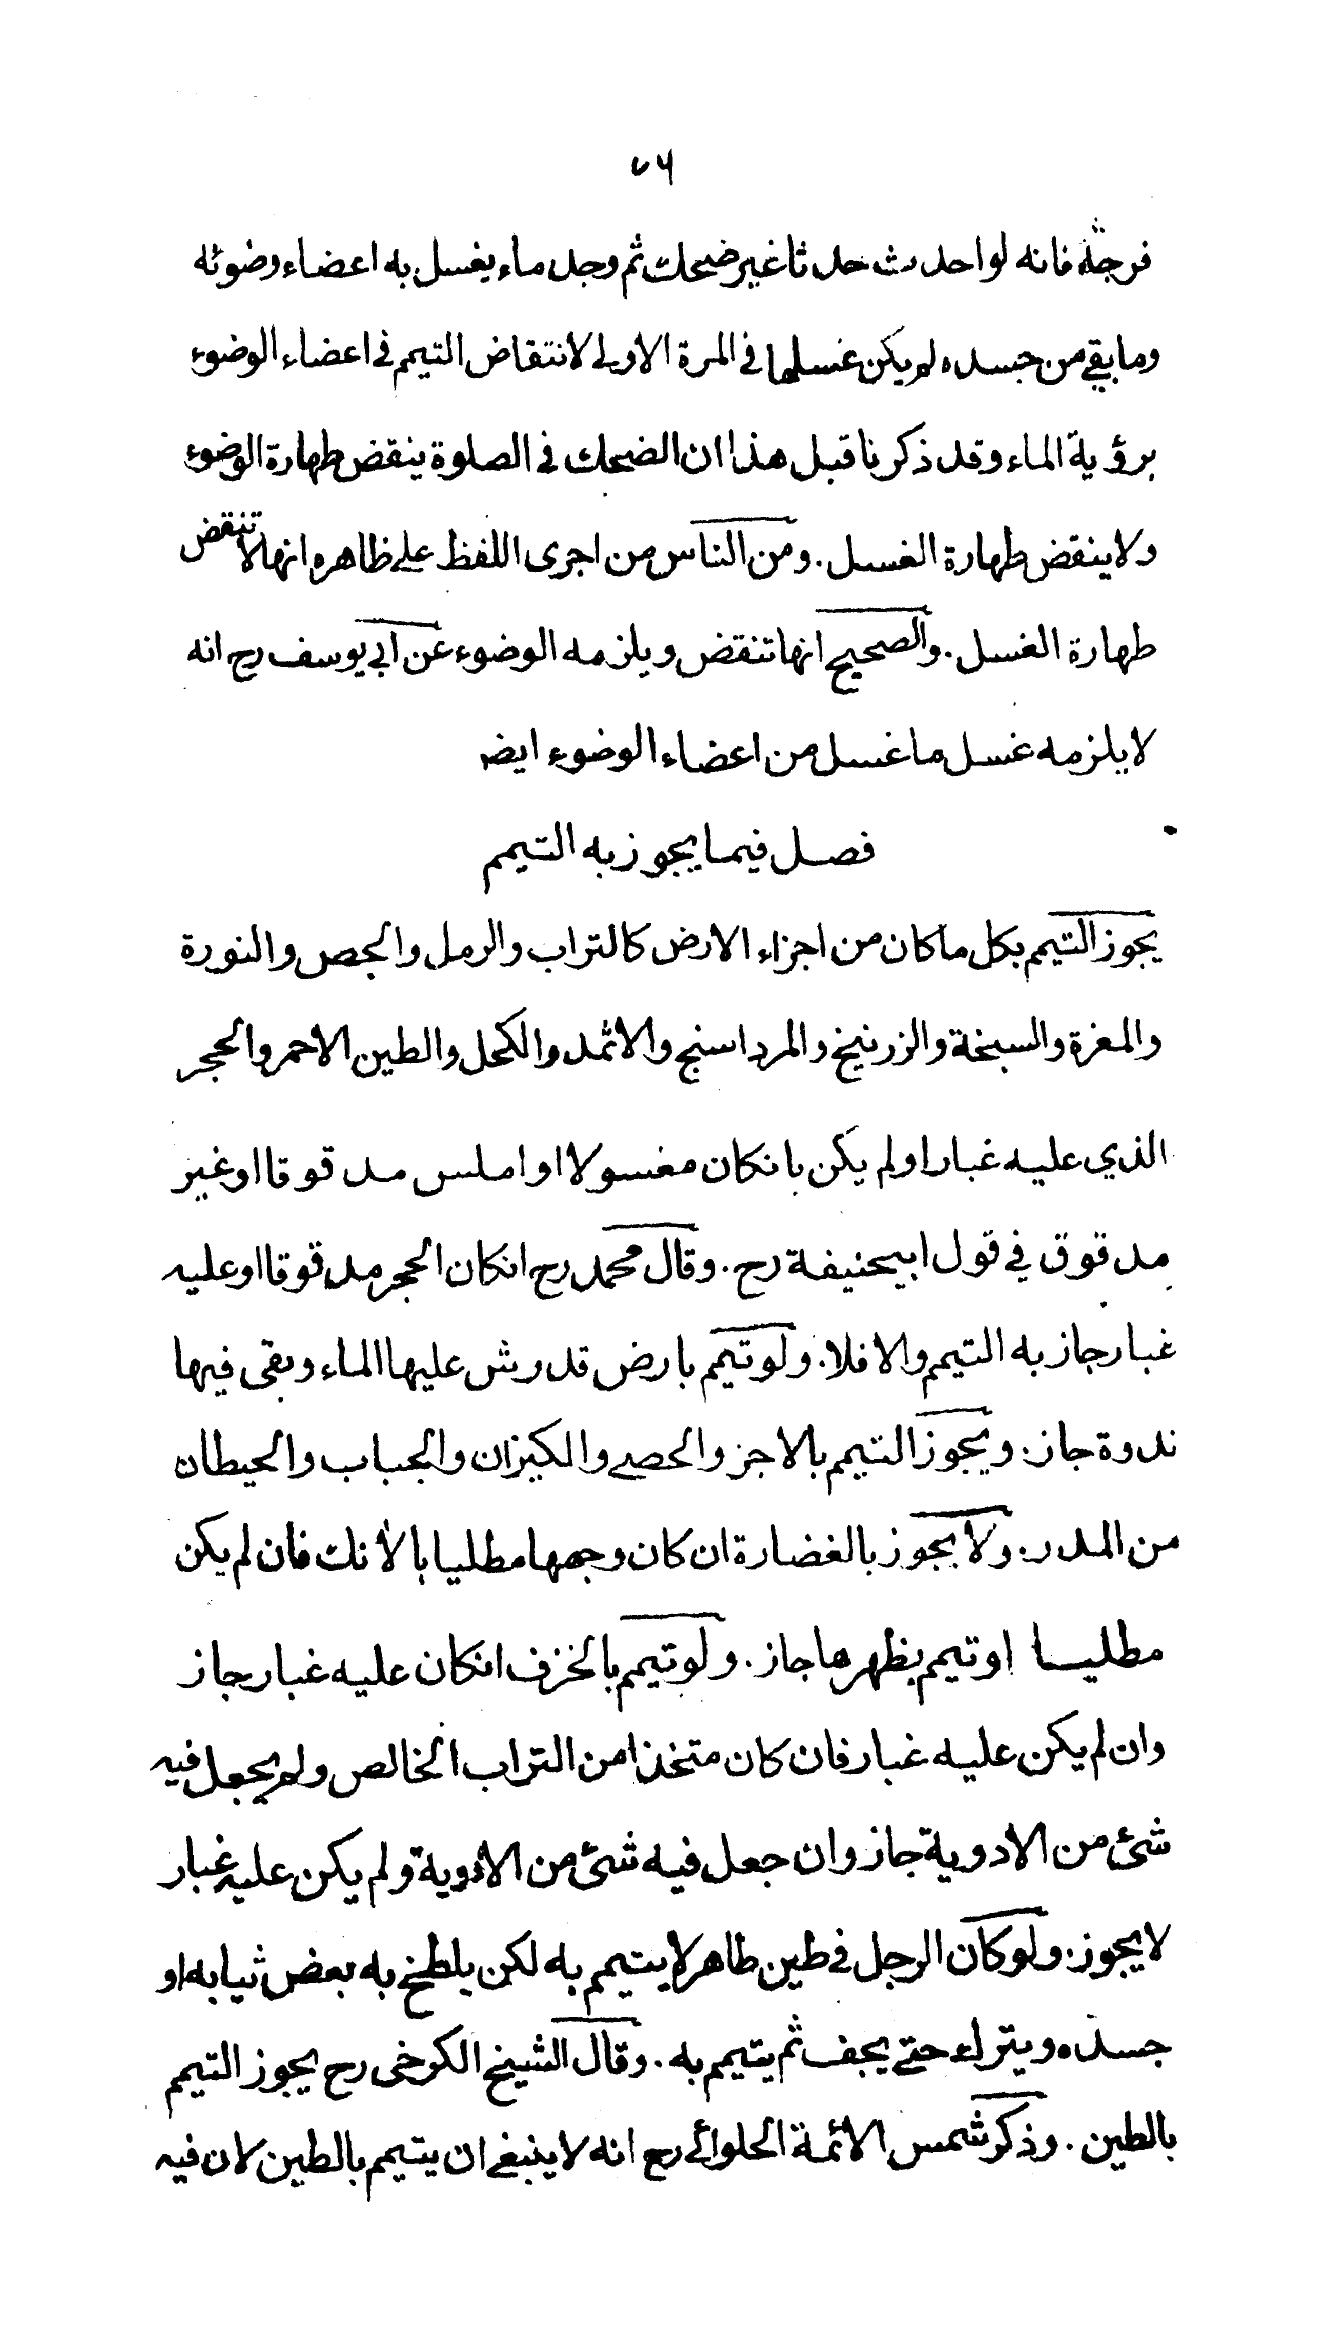 ٧٦
فرجلة فانه لو احدث حدثا غير ضحك ثم وجد ماء يغسل به اعضاء وضوئه
وما بقي من جسده لم يكن غسلها في المرة الاولى لانتقاض التيمم في اعضاء الوضوء
برؤية الماء وقد ذكرنا قبل هذا ان الضحك في الصلوة ينقض طهارة الوضوء
ولا ينقض طهارة الغسل. ومن الناس من اجرى اللفظ على ظاهره انها لا تنقض
طهارة الغسل. والصحيح انها تنقض ويلزمه الوضوء عن ابي يوسف رح انه
لا يلزمه غسل ما غسل من اعضاء الوضوء ايضه
فصل فيما يجوز به التيمم
يجوز التيمم بكل ما كان من اجزاء الارض كالتراب والرمل والجص والنورة
والمغرة والسبخة والزرنيخ والمرداسنج والاثمد والكحل والطين الاحمر والحجر
الذي عليه غبار او لم يكن بانكان مغسولا او املس مدقوقا او غير
مدقوق في قول ابيحنيفة رح. وقال محمد رح انكان الحجر مدقوقا او عليه
غبار جاز به التيمم والا فلا. ولو تيمم بارض قد رش عليها الماء وبقى فيها
ندوة جاز. ويجوز التيمم بالاجر والحصى والكيزان والجباب والحيطان
من المدر. ولا يجوز بالغضارة ان كان وجهها مطليا بالانك فان لم يكن
مطليا او تيمم بظهرها جاز. ولو تيمم بالخزف انكان عليه غبار جاز
وان لم يكن عليه غبار فان كان متخذا من التراب الخالص ولم يجعل فيه
شئ من الادوية جاز وان جعل فيه شئ من الادوية ولم يكن عليه غبار
لا يجوز. ولو كان الرجل في طين طاهر لا يتيمم به لكن يلطخ به بعض ثيابه او
جسده ويترك حتى يجف ثم يتيمم به. وقال الشيخ الكرخى رح يجوز التيمم
بالطين. وذكر شمس الائمة الحلوائي رح انه لا ينبغي ان يتيمم بالطين لان فيه